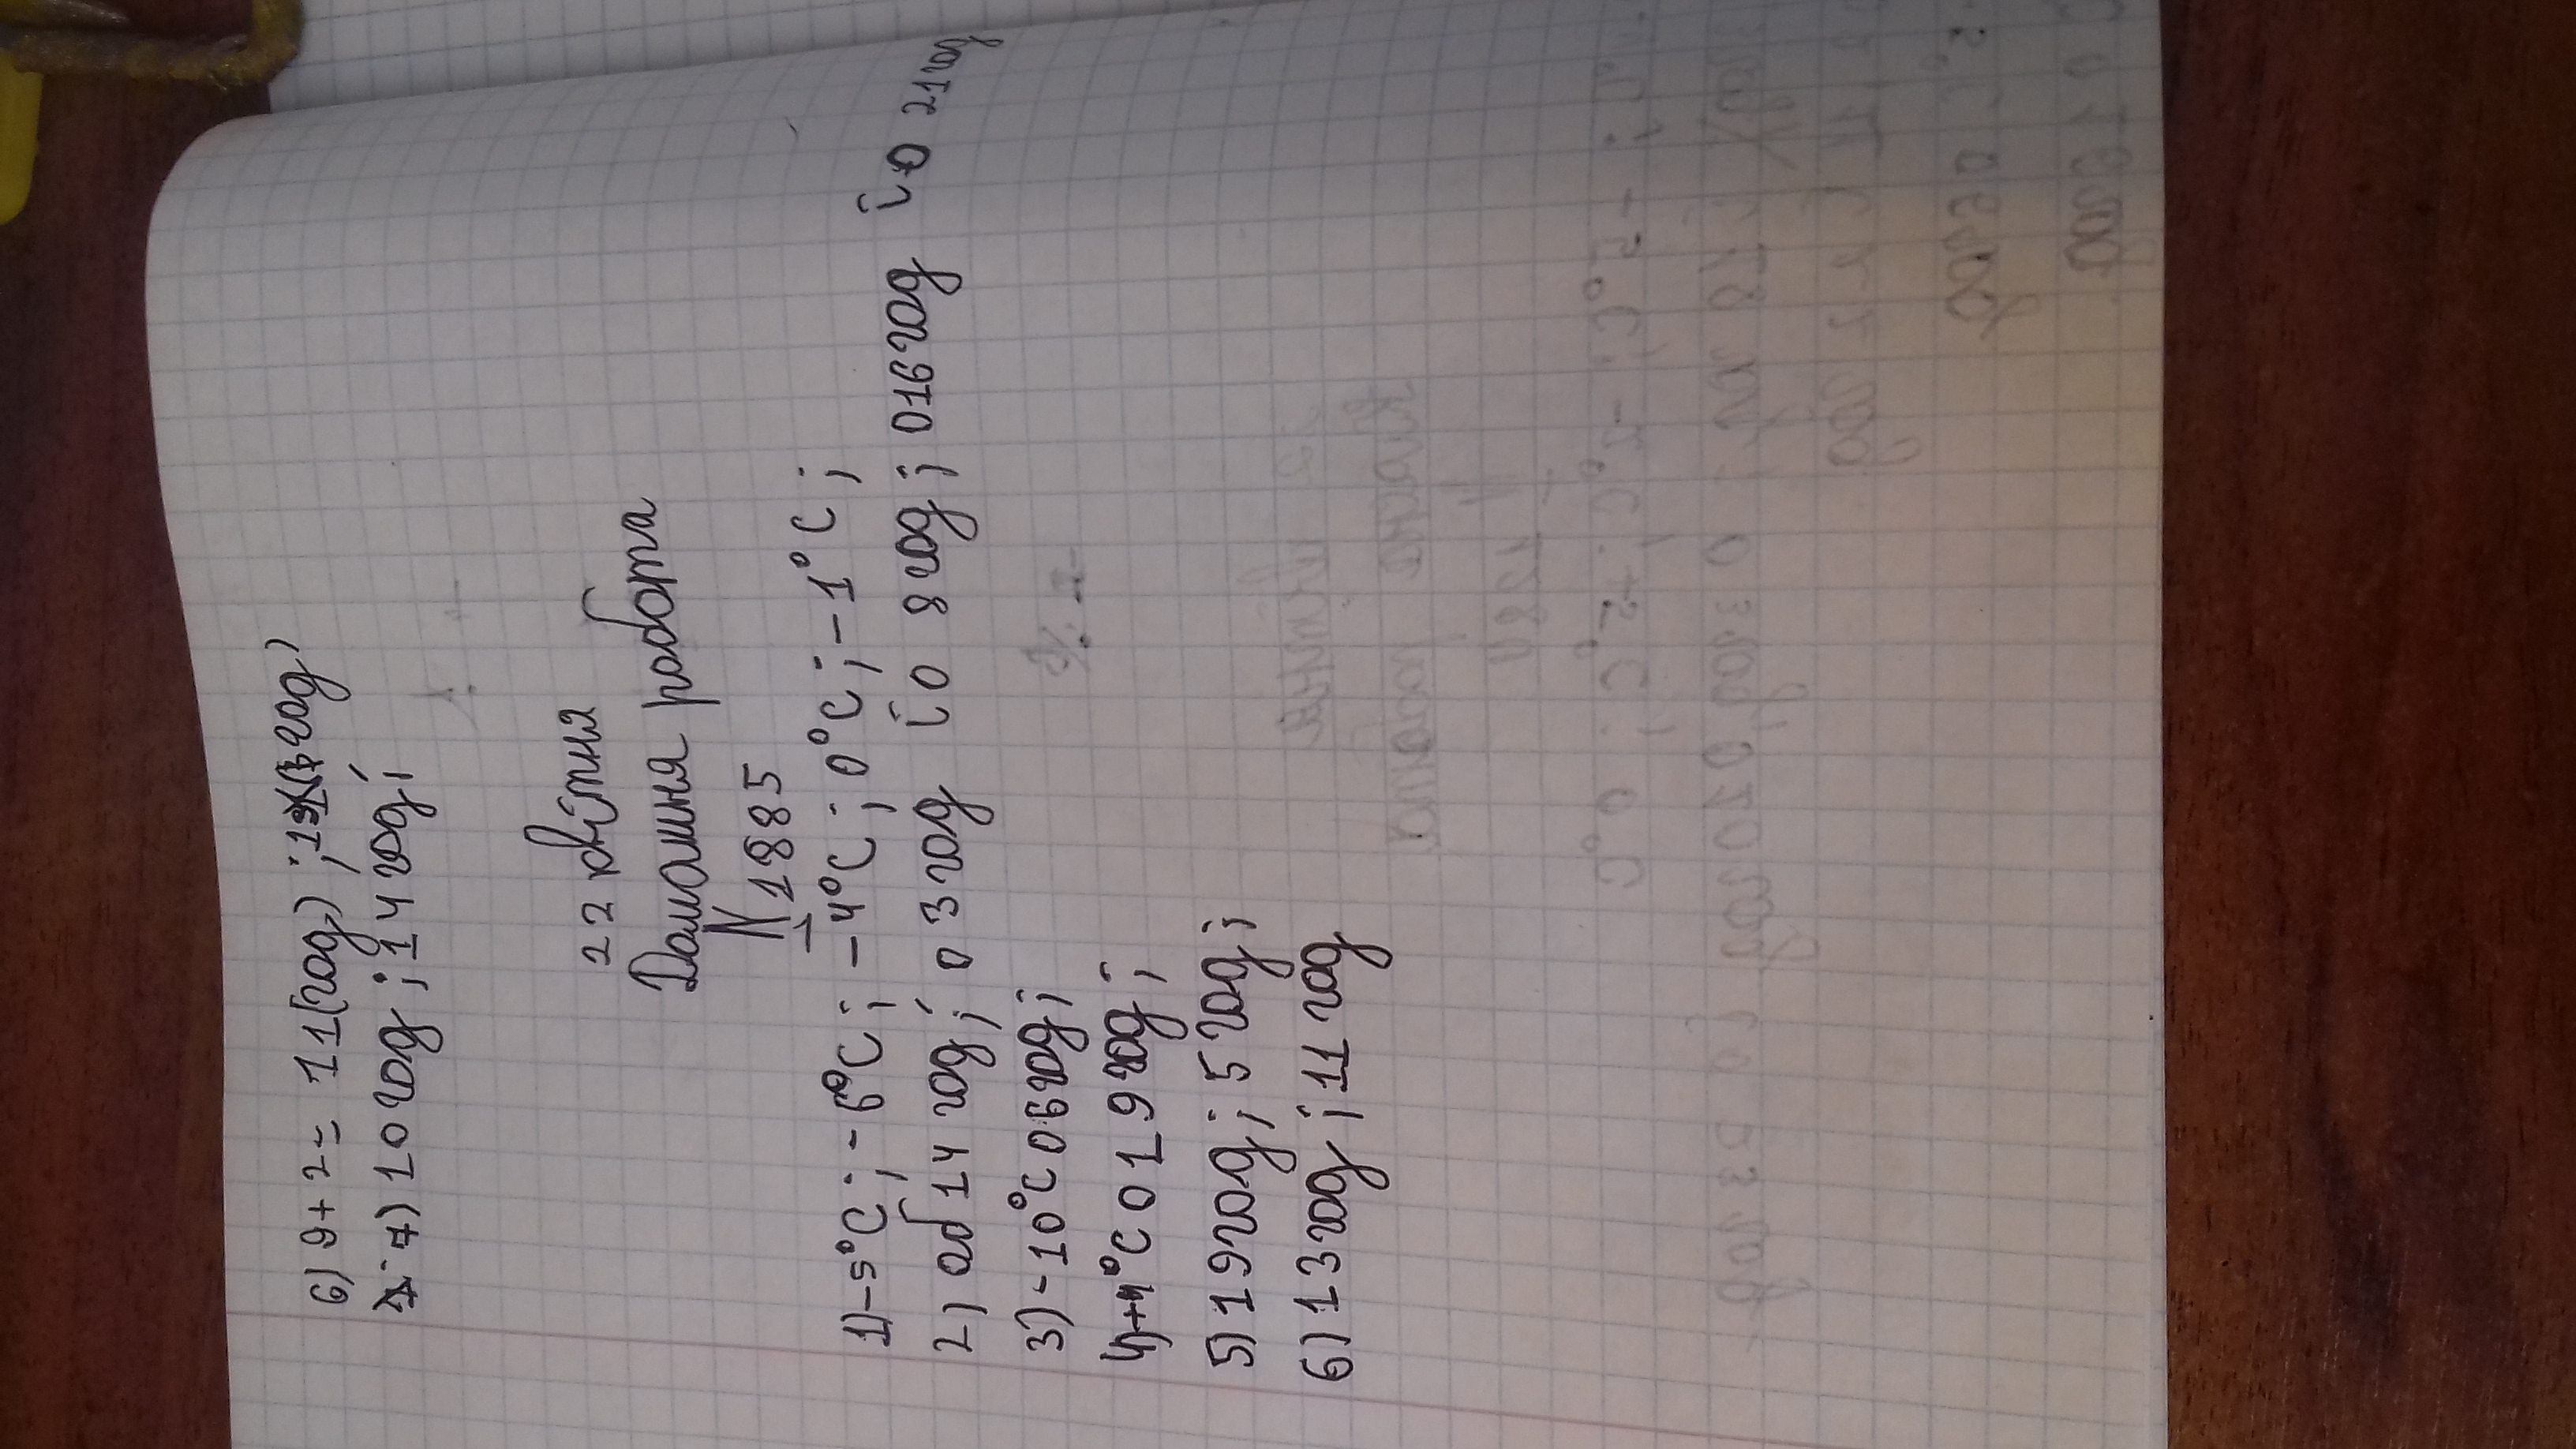 6) 9+2= 11(год);
7) 10 год; 14 год;
22 квітня
Домашня работа
№1885
1) -5°C; -6°C; -4°C; 0°C; -1°C;
2) об 14 год; о 3 год і о 8 год; о 16 год і о 21 год
3) -10°C о 6 год;
4) +4°C о 19 год;
5) 19 год; 5 год;
6) 13 год; 11 год